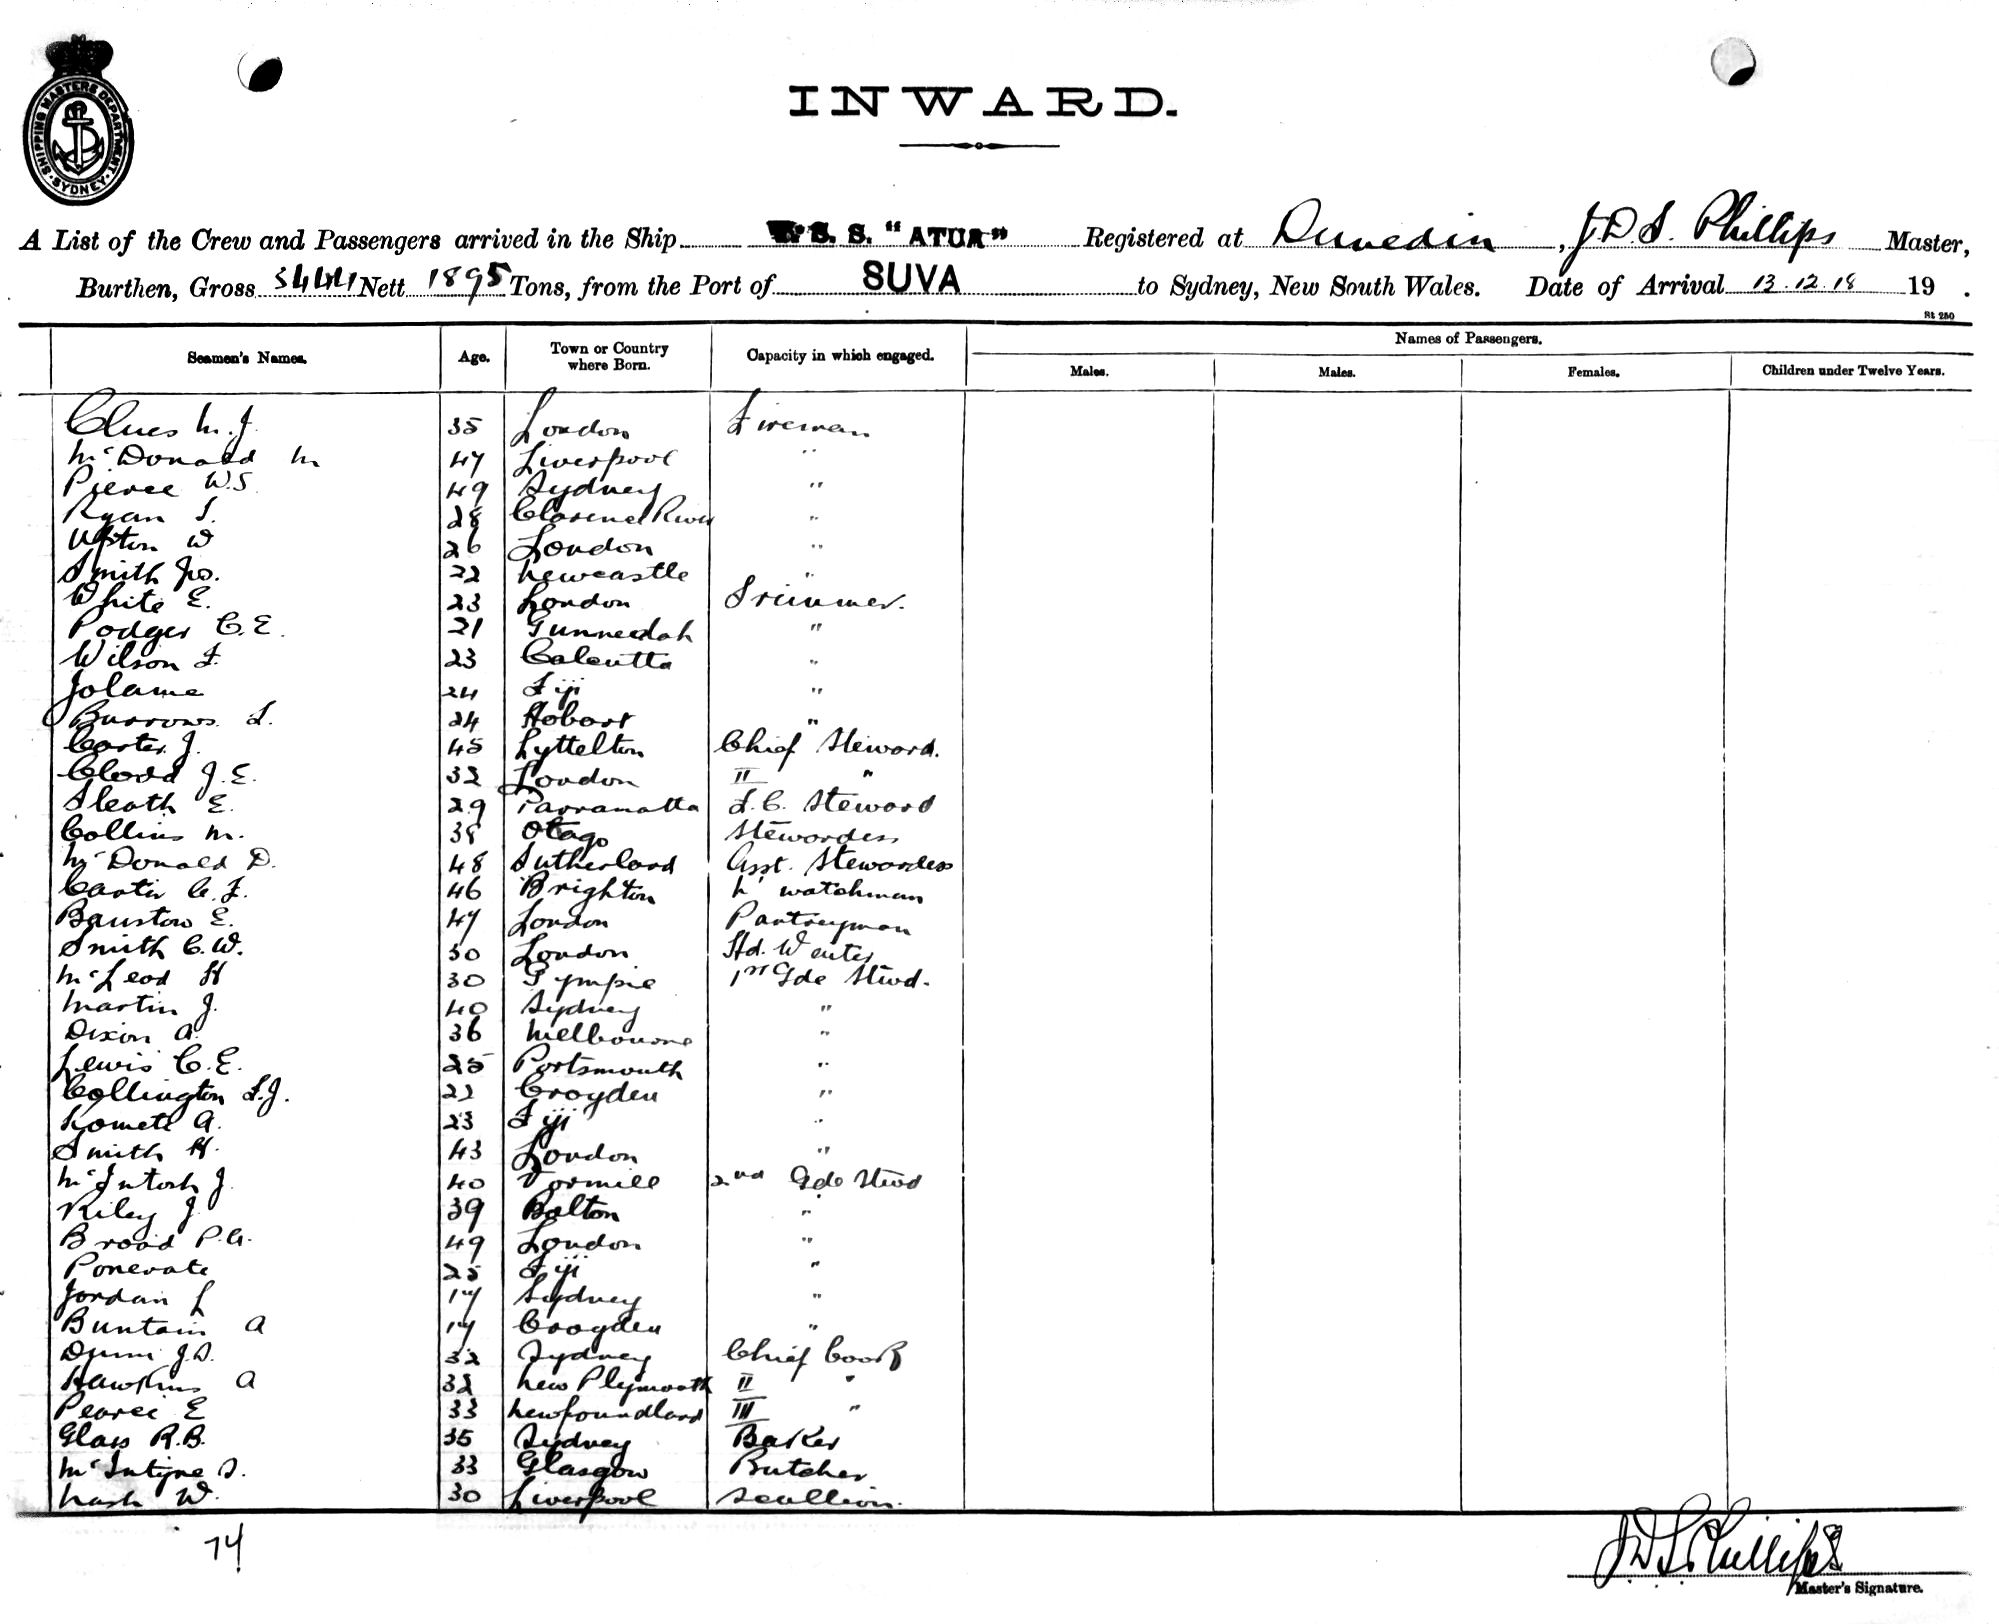 SHIPPING MASTERS DEPARTMENT. SYDNEY.
INWARD.
A List of the Crew and Passengers arrived in the Ship S. S. "ATUA" Registered at Dunedin, J.D.S. Phillips Master,
Burthen, Gross 3444 Nett 1895 Tons, from the Port of SUVA to Sydney, New South Wales. Date of Arrival 13.12.18 19 .
St 250
Seamen's Names. Age. Town or Country where Born. Capacity in which engaged. Names of Passengers.
Males. Males. Females. Children under Twelve Years.
Clues M.J. 35 London Fireman
McDonald M 47 Liverpool "
Pierce W.S. 49 Sydney "
Ryan T. 28 Clarence River "
Upton W 26 London "
Smith Jno. 22 Newcastle "
White E. 23 London Trimmer.
Podger C.E. 21 Gunnedah "
Wilson F. 23 Calcutta "
Jolame 24 Fiji "
Burrows. L. 24 Hobart "
Carter J. 45 Lyttelton Chief Steward.
J.E. 32 London II "
Sleath E. 29 Parramatta F.C. Steward
Collins M. 38 Otago Stewardess
McDonald D. 48 Sutherland Asst. Stewardess
Carter C.F. 46 Brighton N' watchman
Baustow E. 47 London Pantryman
Smith C.W. 30 London Hd. Waiter
McLeod H 30 Gympie 1st Gde Stwd.
Martin J. 40 Sydney "
Dixon A. 36 Melbourne "
Lewis C.E. 25 Portsmouth "
Collington F.J. 22 Croyden "
Komete A. 23 Fiji "
Smith H. 43 London "
McIntosh J. 40 2nd Gde Stwd
Riley J. 39 Bolton "
Broad P.A. 49 London "
Ponerate 25 Fiji "
Jordan L 17 Sydney "
Buntain A 17 Croyden "
Dunn J.D. 32 Sydney Chief Cook
Hawkins A 32 New Plymouth II "
Pearce E 33 Newfoundland III "
Glass R.B. 35 Sydney Baker
McIntyre D. 33 Glasgow Butcher
Nash W. 30 Liverpool Scullion.
74
J.D.S. Phillips
Master's Signature.